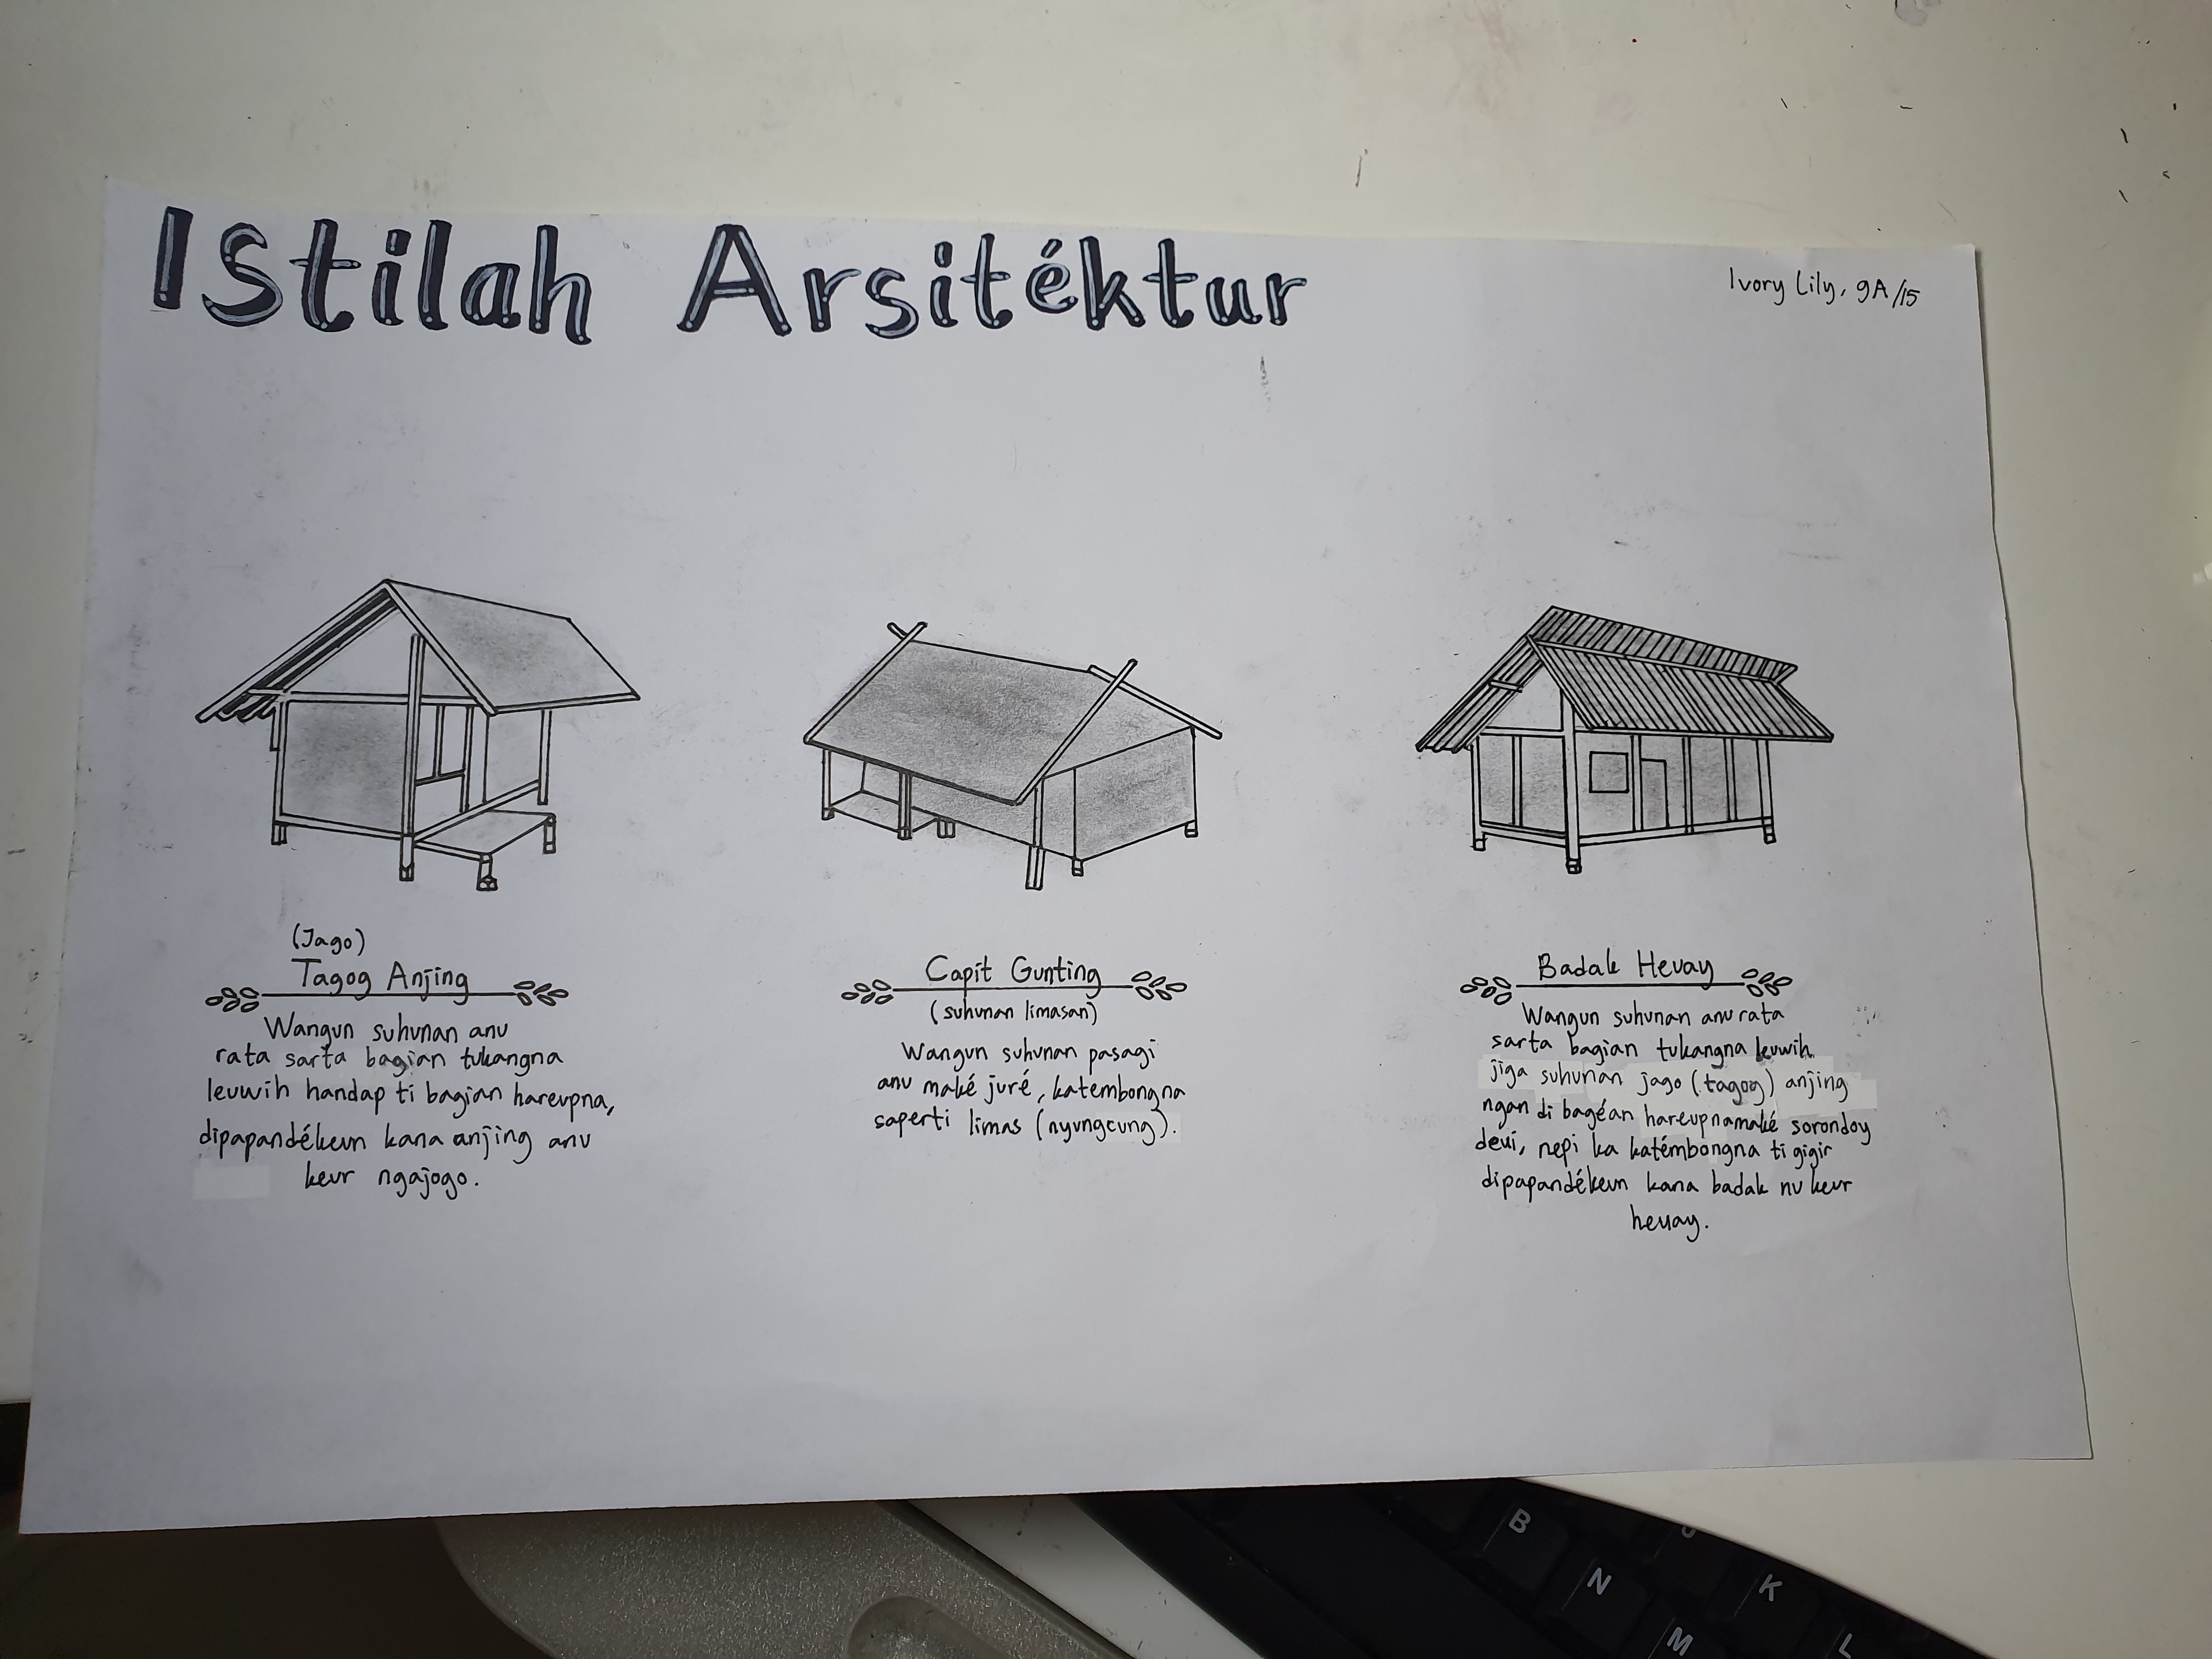 Istilah Arsitéktur
Ivory Lily, 9A/15
(Jago)
Tagog Anjing
Wangun suhunan anu
rata sarta bagian tukangna
leuwih handap ti bagian hareupna,
dipapandékeun kana anjing anu
keur ngajogo.
Capit Gunting
(suhunan limasan)
Wangun suhunan pasagi
anu maké juré, katembongna
saperti limas (nyungcung).
Badak Heuay
Wangun suhunan anu rata
sarta bagian tukangna leuwih
jiga suhunan jago (tagog) anjing
ngan di bagéan hareupna maké sorondoy
deui, nepi ka katémbongna ti gigir
dipapandékeun kana badak nu keur
heuay.
B
N
M
K
L